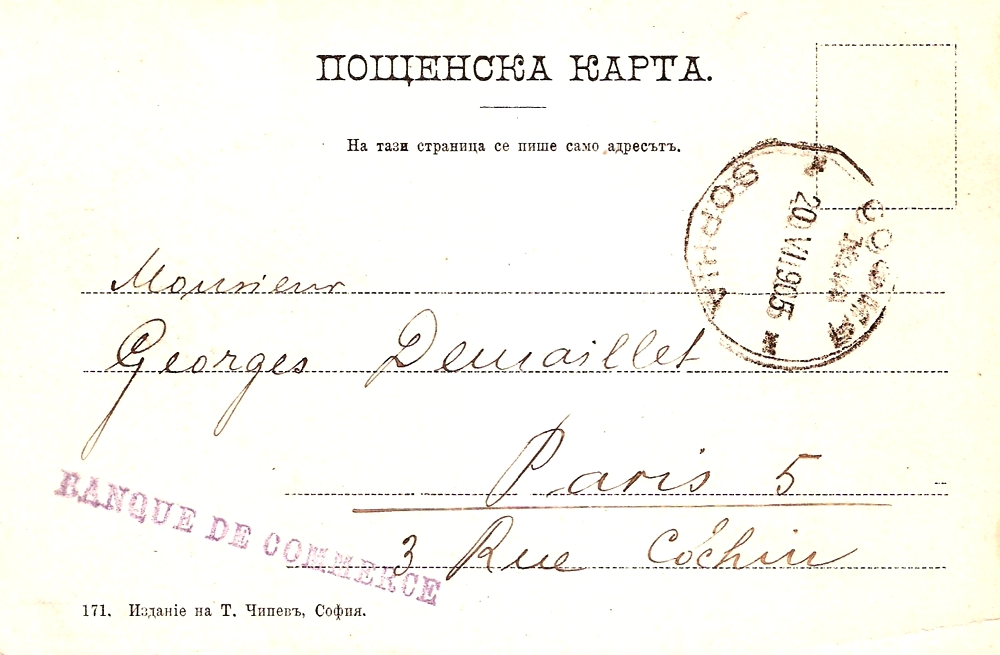 ПОЩЕНСКА КАРТА.
На тази страница се пише само адресътъ.
SOPHIA
20 VI 905
СОФИЯ
Monsieur
Georges Demaillet
Paris 5
3 Rue Cochin
BANQUE DE COMMERCE
171. Изданіе на Т. Чипевъ, София.